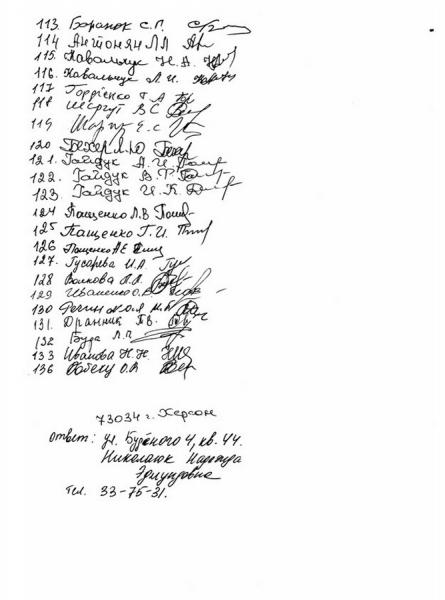 113. Баранюк С.Г.
114 Антонян Л.Л.
115. Кавальчук Н.А.
116. Кавальчук Л.И.
117 Гордиенко Т.А.
118 В С
119 Е.С
120 Л.Ю
121. Гайдук А.И.
122. Гайдук В.Г.
123. Гайдук И.К.
124 Пащенко Л.В
125 Пащенко Г.И.
126 Пащенко А Е
127. Гусарева И.А.
128 Волкова Л.А.
129 Иваненко О.В.
130
131. Дранник П.В.
132 Буда Л.П.
133 Иванова Н.Н.
136 О.В
73034 г. Херсон
ответ: ул. Будёного 4, кв. 44.
Николаюк Надежда
Эдмундовна
тел. 33-75-31.